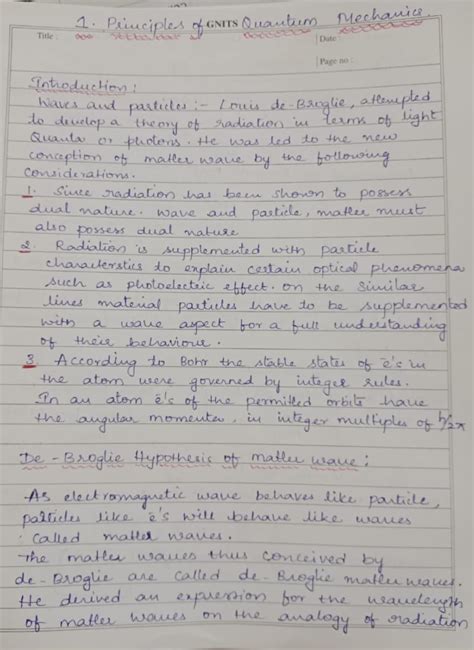 1. Principles of GNITS Quantum Mechanics.
Title :
Date :
Page no :
Introduction :
Waves and particles :- Louis de-Broglie, attempted
to develop a theory of radiation in terms of light
Quanta or photons. He was led to the new
conception of matter wave by the following
considerations.
1. Since radiation has been shown to possess
dual nature. wave and particle, matter must
also possess dual nature
2. Radiation is supplemented with particle
characterstics to explain certain optical phenomena
such as photoelectric effect. on the similar
lines material particles have to be supplemented
with a wave aspect for a full understanding
of their behaviour.
3. According to Bohr the stable states of e̅'s in
the atom were governed by integer rules.
In an atom e̅'s of the permitted orbits have
the angular momenta, in integer multiples of h/2π
De-Broglie Hypothesis of matter wave :
As electromagnetic wave behaves like particle,
particles like e̅'s will behave like waves
called matter waves.
The matter waves thus conceived by
de-Broglie are called de-Broglie matter waves.
He derived an expression for the wavelength
of matter waves on the analogy of radiation